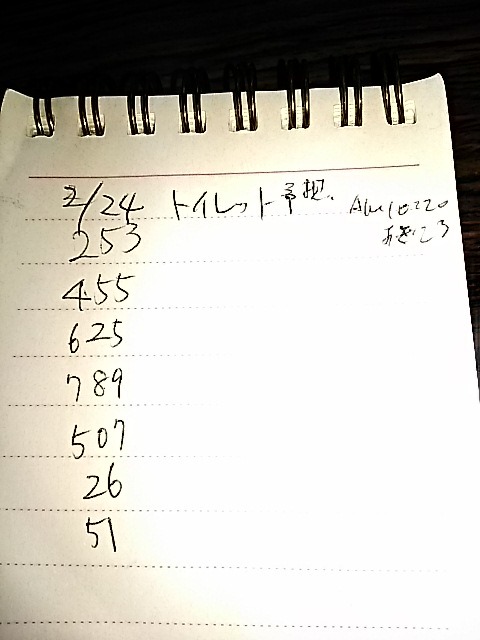 2/24 トイレット予想. AM10:20
253
455
625
789
507
26
51